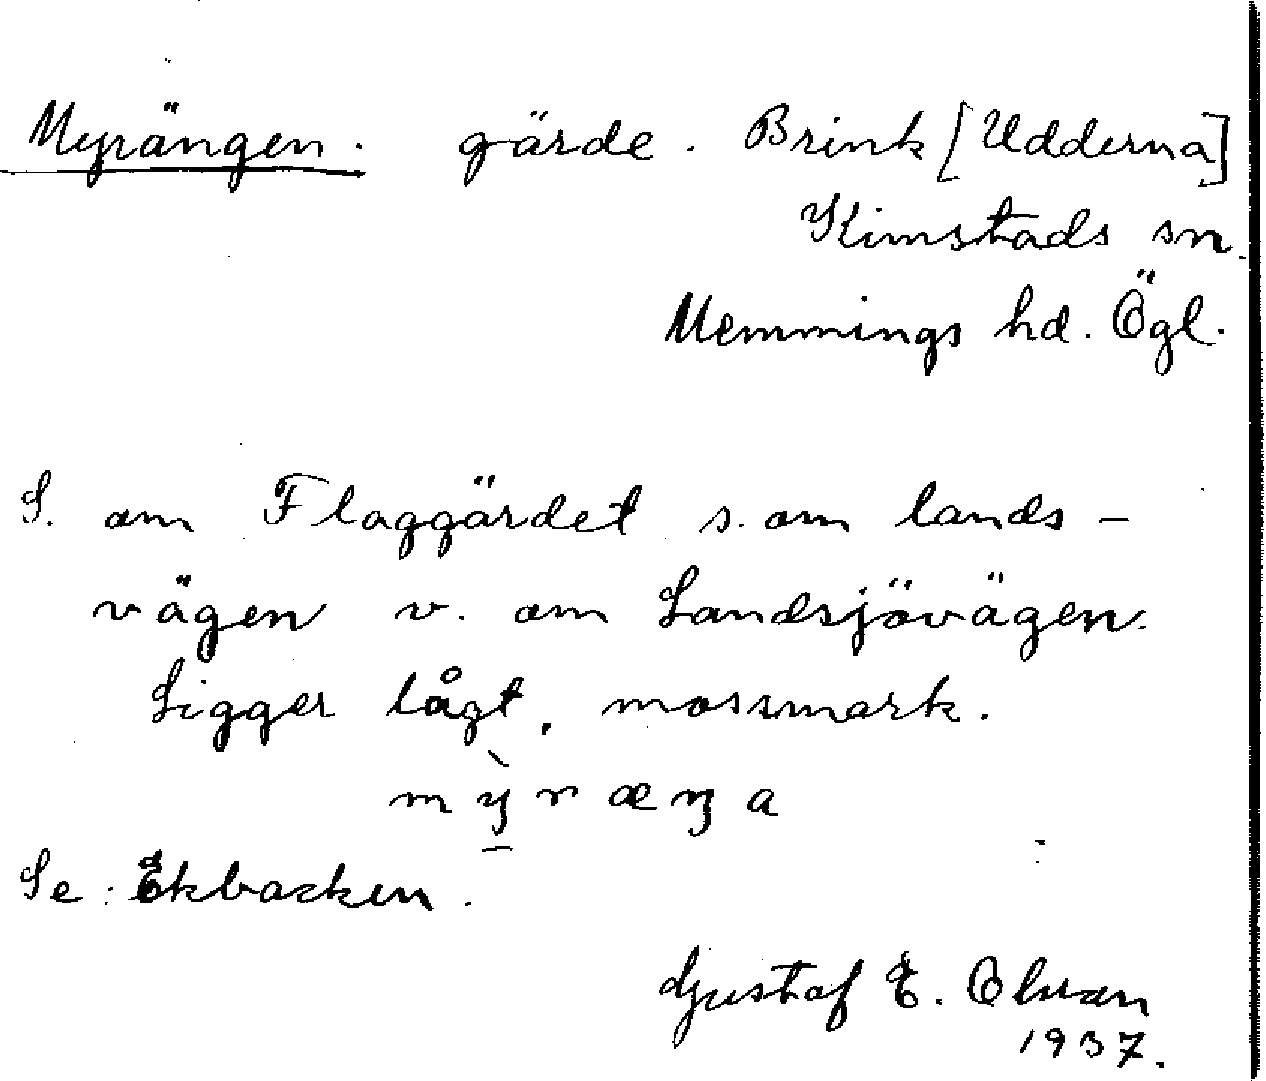 Myrängen. gärde. Brink [Udderna]
Kimstads sn.
Memmings hd. Ögl.
S. om Flaggärdet s. om lands-
vägen v. om Landsjövägen.
Ligger lågt, mossmark.
mỳ̱ræŋa
Se: Ekbacken.
Gustaf E. Olsson
1937.